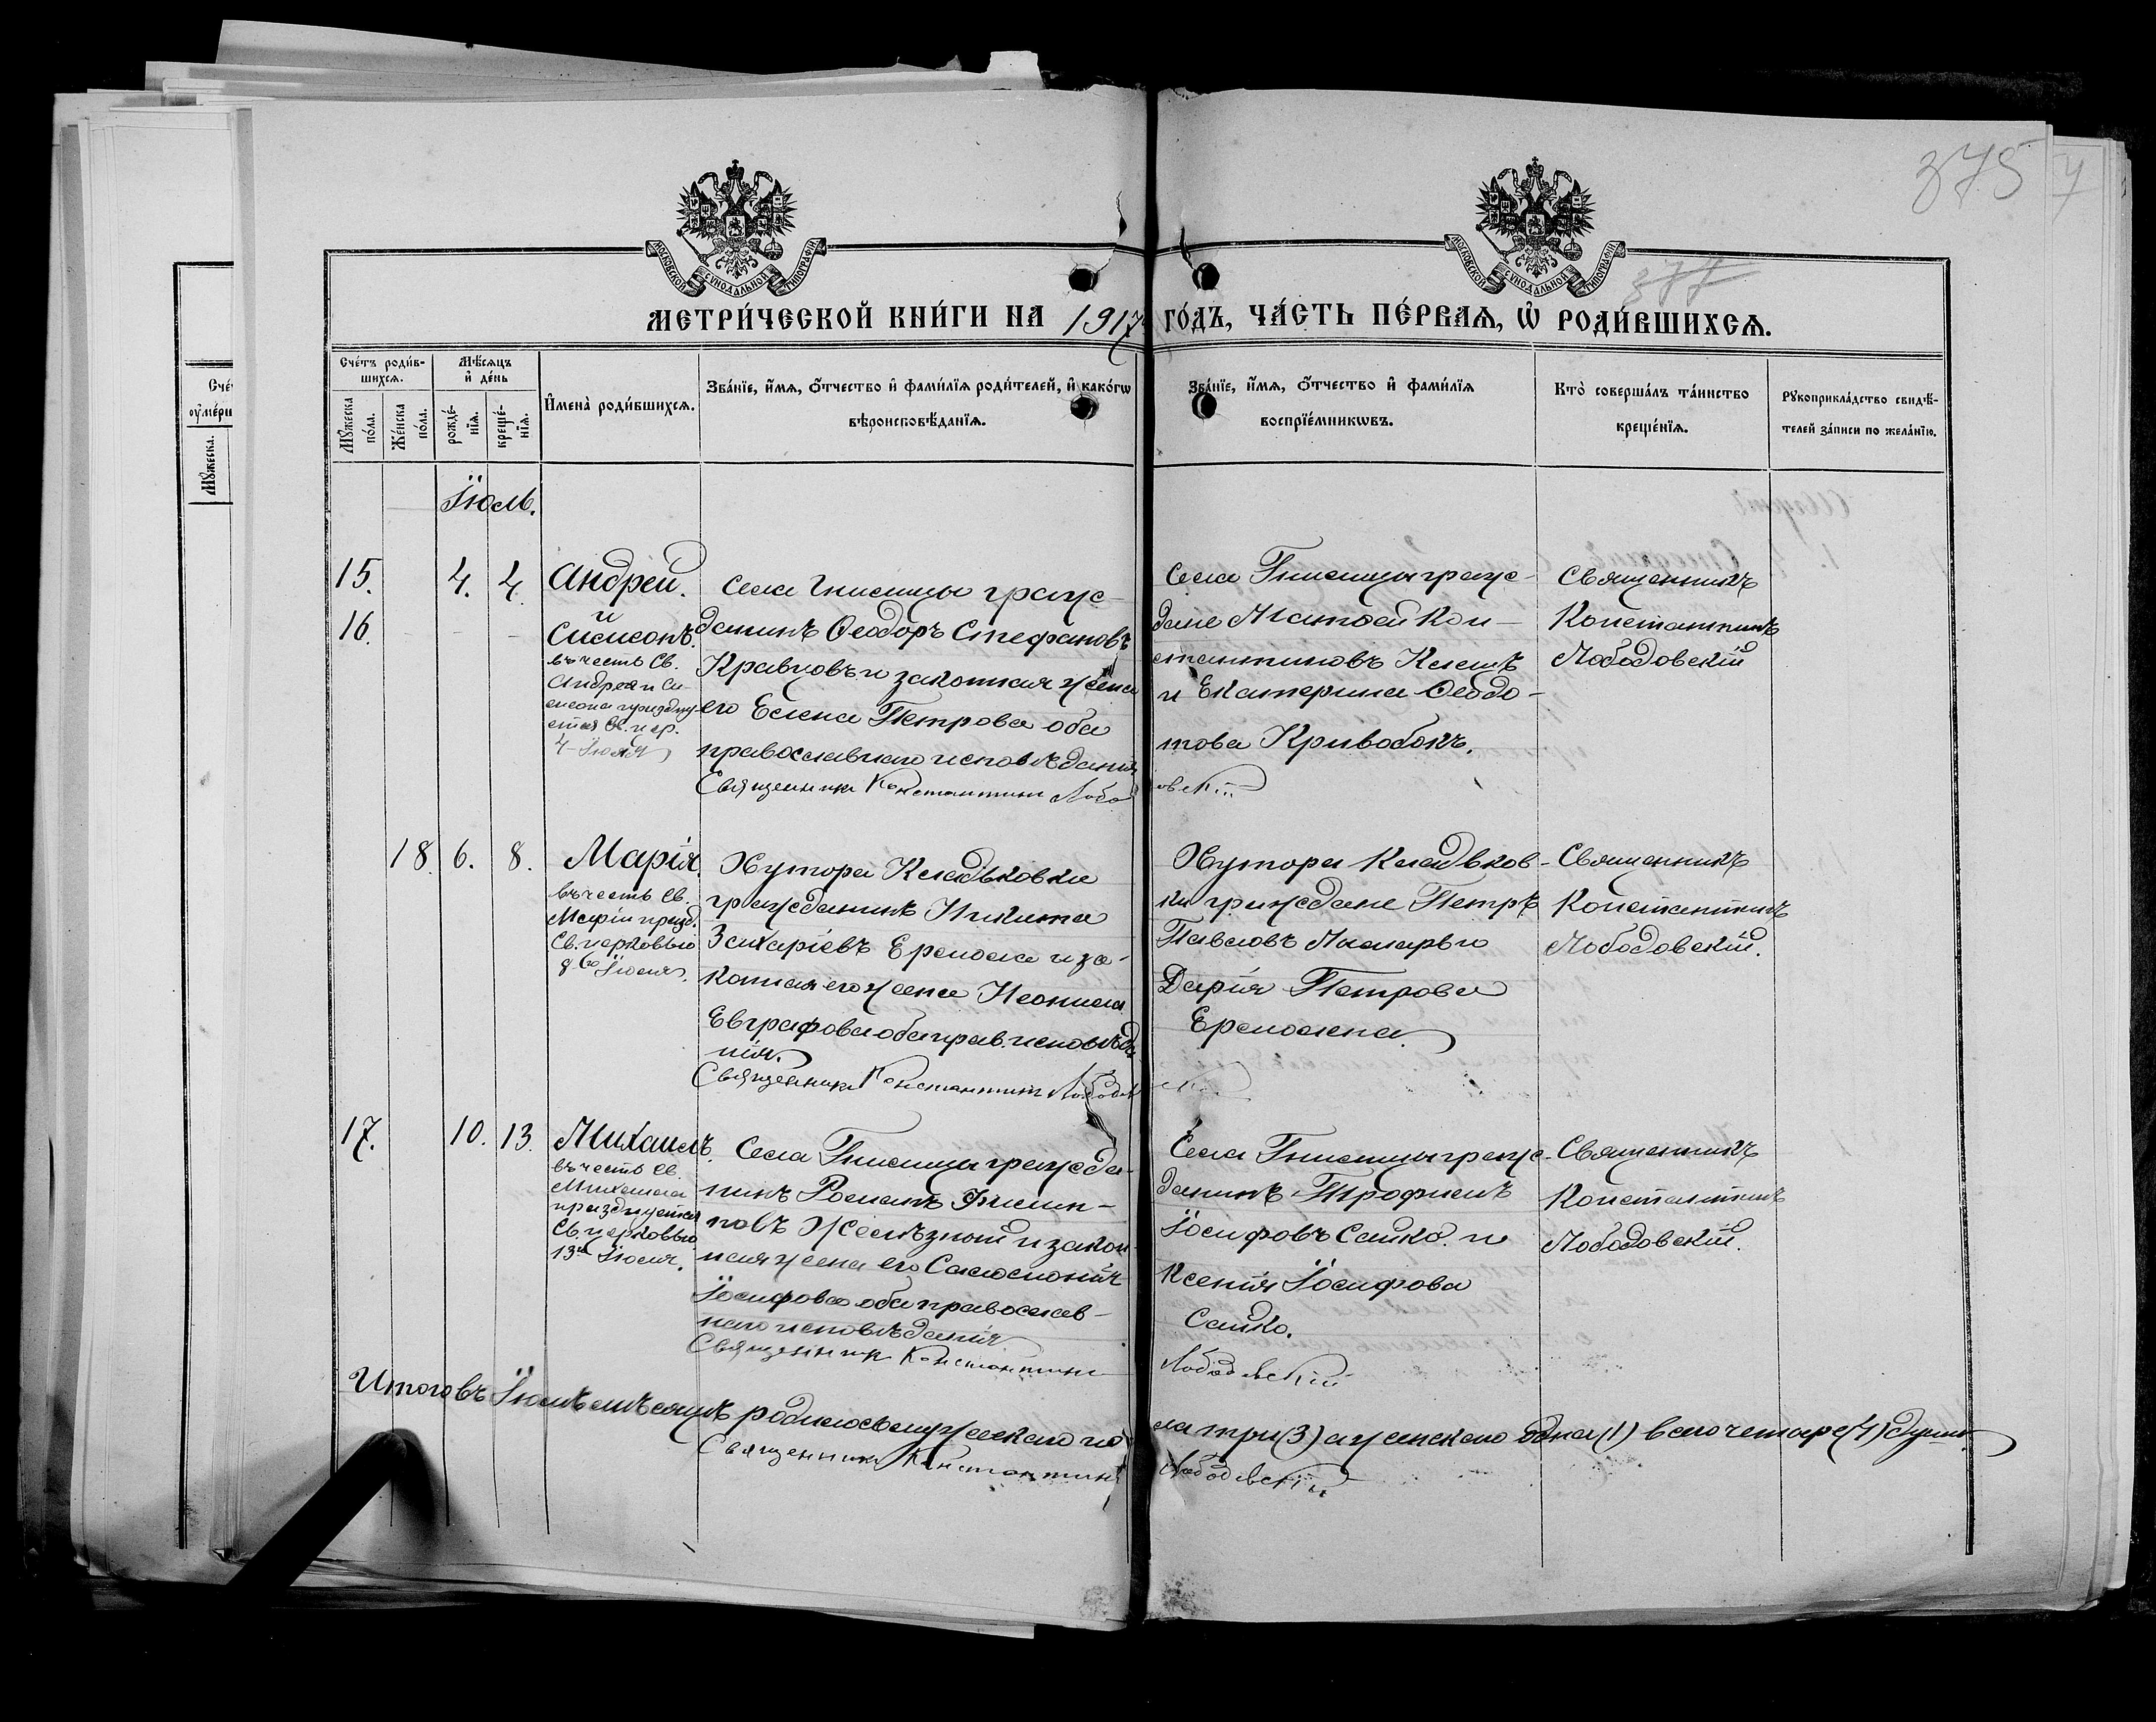 375
377
МОСКОВСКОЙ СѴНОДАЛЬНОЙ ТИПОГРАФІИ
МОСКОВСКОЙ СѴНОДАЛЬНОЙ ТИПОГРАФІИ
МЕТРИ́ЧЕСКОЙ КНИ́ГИ НА 1917 ГО́ДЪ, ЧА́СТЬ ПЕ́РВАѦ, Ѡ҆ РОДИ́ВШИХСѦ.
Сче́тъ роди́в-
шихсѧ.
Мꙋ́жеска
по́ла.
Же́нска
по́ла.
Мѣ́сѧцъ
и҆ де́нь
рожде́-
нїѧ.
креще́-
нїѧ.
И҆мена̀ роди́вшихсѧ.
Зва́нїе, и҆́мѧ, ѻ҆́тчество и҆ фами́лїѧ роди́телей, и҆ како́гѡ
вѣроисповѣ́данїѧ.
Зва́нїе, и҆́мѧ, ѻ҆́тчество и҆ фами́лїѧ
воспрїе́мникѡвъ.
Кто̀ соверша́лъ та́инство
креще́нїѧ.
Рꙋкоприкла́дство свидѣ́-
телей за́писи по жела́нїю.
Сче́
оу҆ме́рш
Мꙋ́жеска.
Іюль.
15.
16.
4. 4.
Андрей.
и
Сисисонъ.
въ честь Св.
Андрея и Си-
празdну-
ется Св. цер.
4 Іюля
Села Гнилицы граж-
данинъ Ѳеодоръ Стефановъ
Кравцовъ и законная жена
его Елена Петрова оба
православнаго исповѣданія
Священникъ Константинъ Лободовскій
Села Гнилицы граж-
дане Матѳей Кон-
стантиновъ Клешъ
и Екатерина Ѳеодо-
това Кривобокъ.
Священникъ
Константинъ
Лободовскій
18. 6. 8.
Марія.
въ честь Св.
Маріи празд.
Св. церковью
Іюля.
Хутора Кладьковки
гражданинъ Никита
Захаріевъ Ермолаенка и за-
конная его жена Неонила
Евграфова оба прав. исповѣда-
нія.
Священникъ Константинъ Лободов
Хутора Кладьков-
ки граждане Петръ
Павловъ и
Дарія Петрова
Священникъ
Константинъ
Лободовскій.
17. 10. 13.
Михаилъ.
въ честь Св.
Михаила
празднуется
Св. церковью
13го Іюля.
Села Гнилицы гражда-
нинъ Романъ Филип-
повъ Желѣзный и закон-
ная жена его Саломонія
Іосифова оба православ-
наго исповѣданія
Священникъ Константинъ
Села Гнилицы граж-
данинъ Трофимъ
Іосифовъ Сайко. и
Ксенія Іосифова
Сайко.
Лободовскій
Священникъ
Константинъ
Лободовскій.
Итого въ Іюлѣ мѣсяцѣ родилось мужескаго по
ла три (3) а женскаго одна (1) всего четыре (4) души
Священникъ Константинъ
Лободовскій